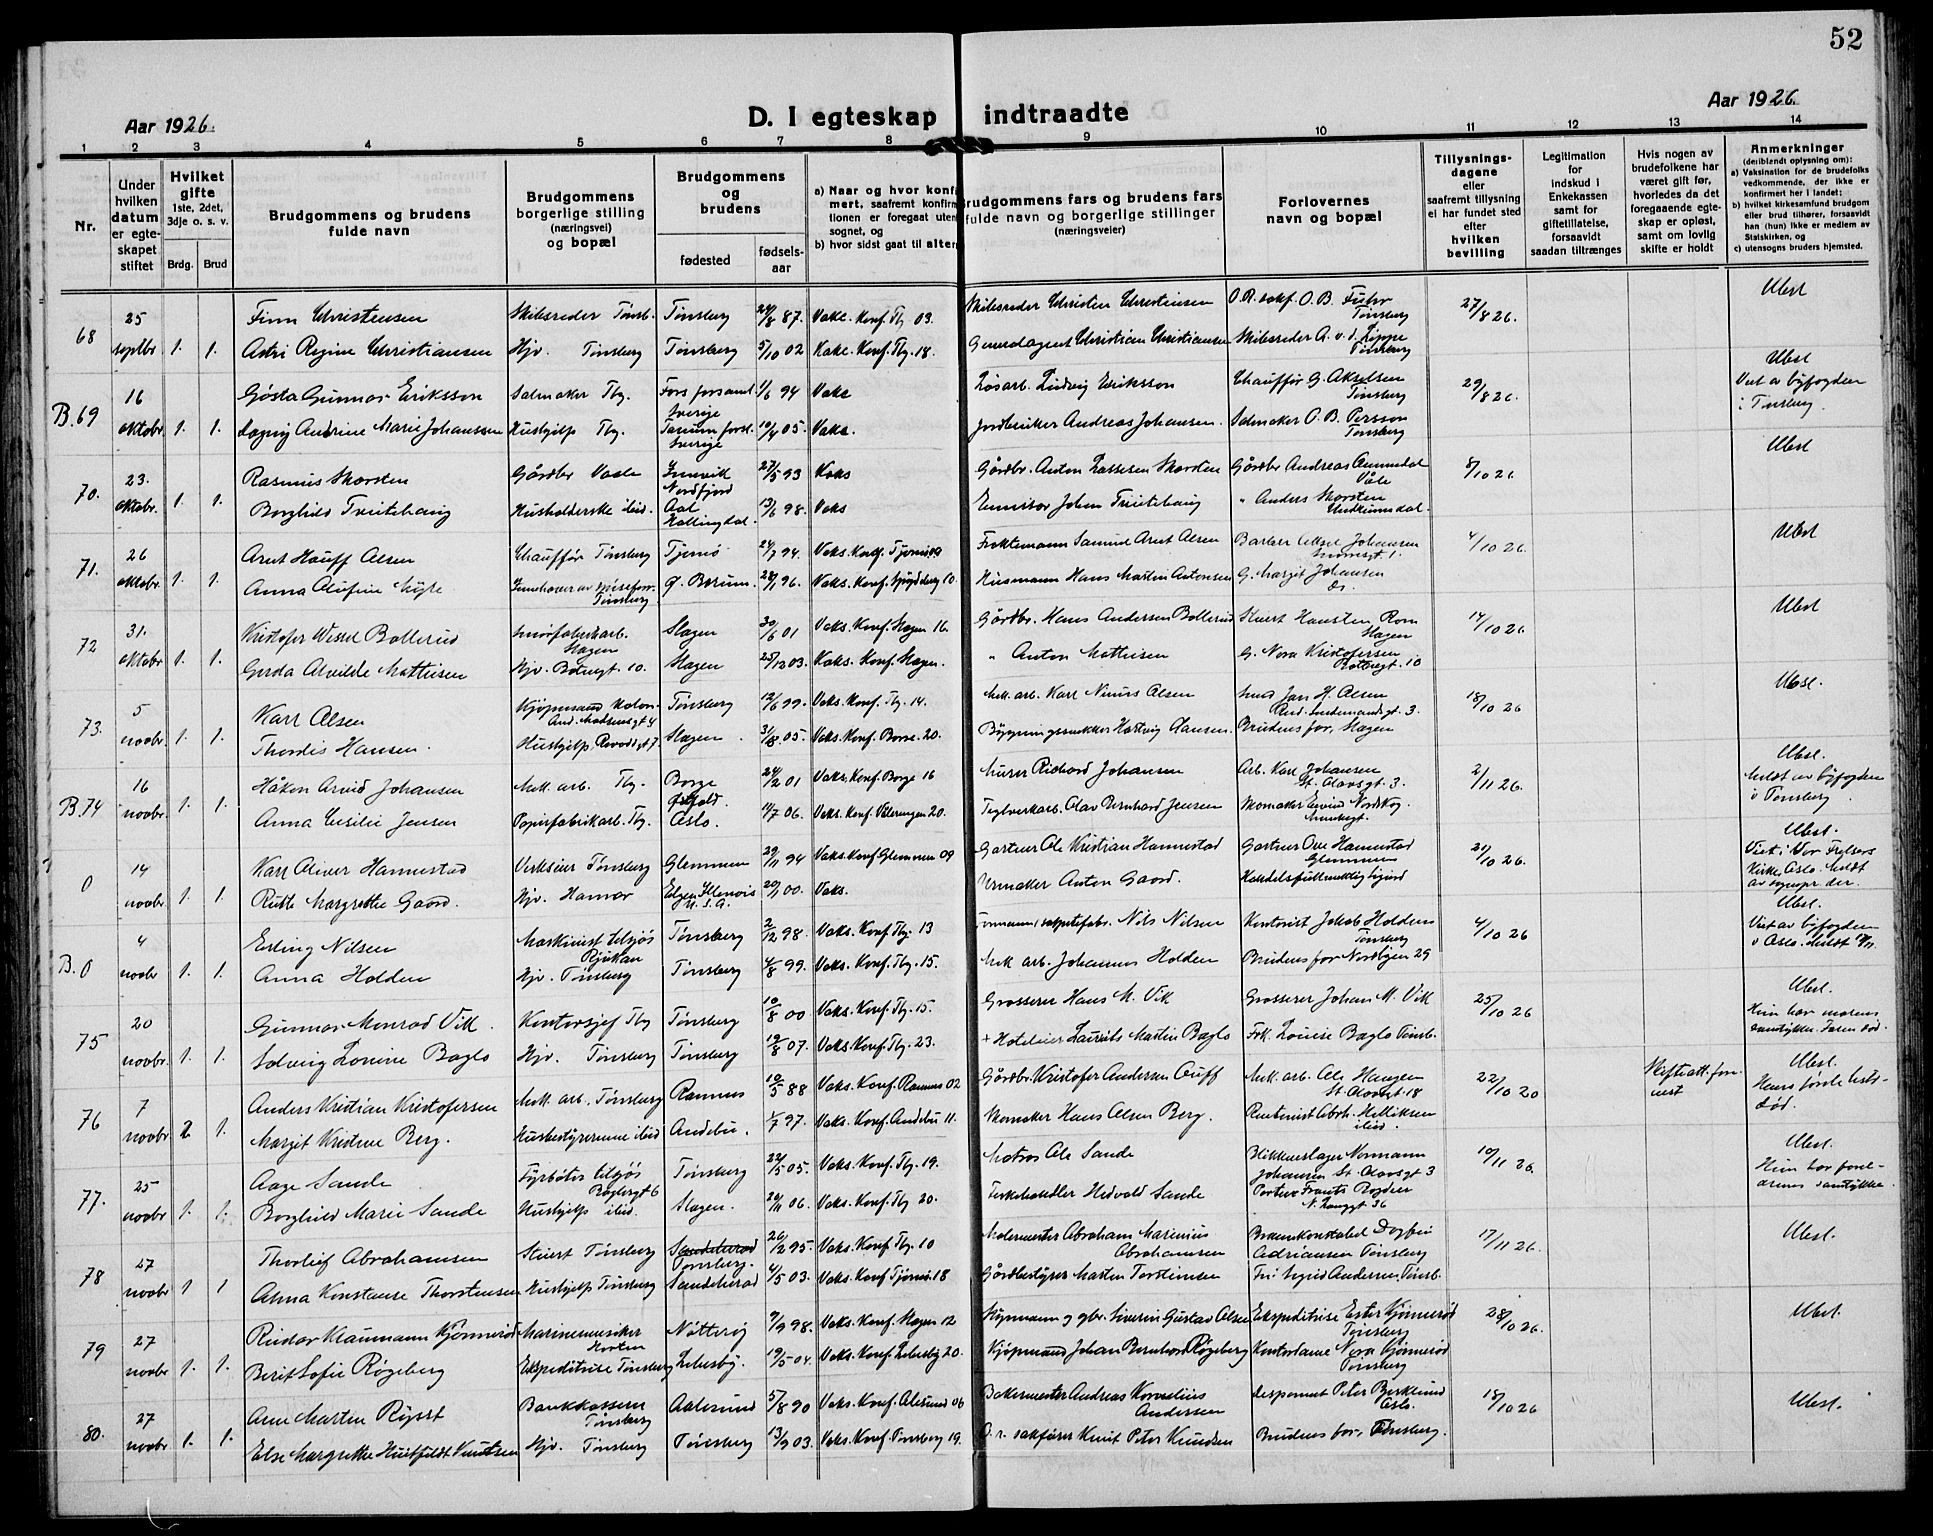 52
Aar 1926.
D. I egteskap indtraadte
Aar 1926.
1 2 3 4 5 6 7 8 9 10 11 12 13 14
Nr.
Under hvilken datum er egteskapet stiftet
Hvilket gifte
1ste, 2det, 3dje o. s. v.
Brdg. Brud
Brudgommens og brudens fulde navn
Brudgommens borgerlige stilling (næringsvei) og bopæl
Brudgommens og brudens
fødested
fødselsaar
a) Naar og hvor konfirmert, saafremt konfirmationen er foregaat utensognet, og
b) hvor sidst gaat til alters
Brudgommens fars og brudens fars fulde navn og borgerlige stillinger (næringsveier)
Forlovernes navn og bopæl
Tillysningsdagene eller saafremt tillysning ei har fundet sted efter hvilken bevilling
Legitimation for indskud i Enkekassen samt for giftetillatelse, forsaavidt saadan tiltrænges
Hvis nogen av brudefolkene har været gift før, hvorledes da det foregaaende egteskap er opløst, samt om lovlig skifte er holdt
Anmerkninger
(deriblandt oplysning om):
a) Vaksination for de brudefolks vedkommende, der ikke er konfirmert her i landet;
b) hvilket kirkesamfund brudgom eller brud tilhører, forsaavidt han (hun) ikke er medlem av Statskirken, og
c) utensogns bruders hjemsted.
68 25 septbr. 1. 1.
Finn Christensen Skibsreder Tønsb. Tønsberg 24/8 87. Vakc. Konf. Tbg 03. Skibsreder Christen Christensen O.R. sakf. O. B. Tønsberg 27/8 26. Ubst
Astri Regine Christiansen Hjv. Tønsberg Tønsberg 5/10 02 Vakc. Konf. Tbg. 18. Generalagent Christian Christiansen Skibsreder A. v. d. Lippe Tønsberg
B.69 16 oktobr. 1. 1.
Gösta Gunnar Eriksson Salmaker Tbg. Fors forsaml. Sverige 1/6 94 Vaks Løsarb. Ludvig Eriksson Chauffør G. Akselsen Tønsberg 29/8 26. Ubst Viet av byfogden i Tønsberg.
Dagny Andrine Marie Johanssen Hushjelp Tbg. Tanum forsl. Sverige 10/4 05. Vaks. Jordbruker Andreas Johansen. Salmaker O. B. Persson Tønsberg
70. 23. oktobr. 1. 1.
Rasmus Skorsten Gårdbr Vaale Innvik Nordfjord 27/5 93 Vaks Gårdbr. Anton Lassesen Skorsten Gårdbr Andreas Våle 8/10 26. Ubst
Borghild Tveitehaug Husholderske ibid. Aal Hallingdal. 13/6 98. Vaks Emissær Johan Tveitehaug " Anders Skorsten Undrumsdal.
71. 26 oktobr. 1. 1.
Arnt Hauff Olsen Chauffør Tønsberg Tjømø 24/7 94. Vaks. Konf. Tjømø 09 Fraktemann Samuel Arnt Olsen Barber Johansen 4/10 26. Ubst
Anna Innehaver av Tønsberg 28/1 96. Vaks. Konf. Spydeberg 10. Husmann Hans Martin Antonsen G. Margit Johansen Ds.
72 31. oktobr. 1. 1.
Kristofer Wessel Bollerud Smørfabrikarb. Slagen Slagen 30/6 01 Vaks. Konf. Slagen 16. Gårdbr. Hans Andersen Bollerud Rom Slagen 14/10 26 Ubst
Gerda Alvilde Mathisen Hjv. 10. Slagen 25/12 03. Vaks. Konf. Slagen. " Anton Mathisen G. Nora Kristofersen 10
73. 5 novbr. 1. 1.
Karl Olsen Kjøpmann Kolon. And. Madsensgt 4 Tønsberg 12/6 99. Vaks. Konf. Tbg. 14. Mek. arb. Karl Olsen Jan H. Olsen 3. 18/10 26 Ubst.
Thordis Hansen. Hushjelp 7. Slagen 31/8 05. Vaks. Konf. Borre. 20. Bygningssnekker Hartvig Hansen. Brudens far, Slagen
B.74 16 novbr. 1. 1.
Håkon Arvid Johansen Mek. arb. Tbg. Borge Østfold. 24/2 01 Vaks. Konf. Borge 16 Murer Richard Johansen Arb. Karl Johansen St. Olavsgt. 3. 2/11 26. Ubst. Meldt av byfogden i Tønsberg.
Anna Cecilie Jensen Papirfabrikarb. Tbg. Oslo. 14/7 06. Vaks. Konf. Vålerengen 20. Teglverkarb. Olav Bernhard Jensen Skomaker Eivind Nordskog.
0 14 novbr. 1. 1.
Karl Oliver Hannestad Verkseier Tønsberg Glemmen 29/11 94 Vaks. Konf. Glemmen 09 Gartner Ole Kristian Hannestad Gartner Ove Hannestad Glemmen 21/10 26. Ubst. Viet i Vor Frelsers Kirke, Oslo. Meldt av sognepr. der.
Ruth Margrethe Gaard. Hjv. Hamar Elgin Illinois U. S. A. 20/1 00. Vaks. Urmaker Anton Gaard. Handelsfullmektig
B.0 4 novbr 1. 1.
Erling Nilsen Maskinist tilsjøs Rjukan Tønsberg 2/12 98. Vaks. Konf. Tbg. 13 Formann i salpeterfabr. Nils Nilsen Kontorist Jakob Holden Tønsberg 4/10 26 Ubst. Viet av byfogden i Oslo.
Anna Holden Hjv. Tønsberg Tønsberg 4/8 99. Vaks. Konf. Tbg. 15. Mek. arb. Johannes Holden Brudens far Nordbyen 29
75 20 novbr. 1. 1.
Gunnar Monrad Vik. Kontorsjef Tbg Tønsberg 10/8 00 Vaks. Konf. Tbg. 15. Grosserer Hans M. Vik Grosserer Johan M. Vik 25/10 26 Ubst. Hun har morens samtykke. Faren død.
Solveig Lovine Baglo Hjv. Tønsberg Tønsberg 12/8 07. Vaks. Konf. Tbg. 23. + Hoteleier Laurits Martin Baglo Frk. Louise Baglo Tønsb.
76 7 novbr 2. 1.
Anders Kristian Kristofersen Mek. arb. Tønsberg Ramnes 10/5 88 Vaks. Konf. Ramnes 02 Gårdbr. Kristofer Andersen Mek. arb. Ole Haugen St. Olavsgt. 18 22/10 20 Skifteatt. forevist Ubst. Hans forde hustr. død.
Margit Kristine Berg. Husbestyrerinne ibid Andebu. 1/7 97. Vaks. Konf. Andebu 11. Skomaker Hans Olsen Berg. Rentenist Abrh. Hellikson ibid.
77. 25 novbr. 1. 1.
Aage Sande Fyrbøter tilsjøs Baglergt 6 Tønsberg 22/5 05. Vaks. Konf. Tbg. 19. Matros Ole Sande Blikkenslager Normann Johansen St. Olavsgt 3 10/11 26. Ubst. Hun har foreldrenes samtykke.
Borghild Marie Sande Hushjelp ibid. Slagen. 20/11 06. Vaks. Konf. Tbg 20. Fiskehandler Hedvald Sande Portner Frants N. Langgt 36
78 27 novbr 1 1
Thorleif Abrahamsen Stuert Tønsberg Sandeherad Tønsberg. 26/2 95. Vaks. Konf. Tbg. 10 Malermester Abraham Marinius Abrahamsen Brannkonstabel Dagfin Adriansen Tønsberg 17/11 26. Ubst.
Alma Konstanse Thorstensen Hushjelp Tønsberg Sandeherad 4/5 03. Vaks. Konf. Tjømø. 18 Gårdbestyrer Martin Torstensen Frk Sigrid Andersen, Tønsb.
79 27 novbr. 1. 1.
Reidar Klaumann Kjønnerød Marinemusiker Horten Nøtterøy 9/9 98. Vaks. Konf. Slagen 12 Kjøpmann og gbr. Severin Gustav Olsen Ekspeditrise Ester Kjønnerød Tønsberg 28/10 26. Ubst.
Berit Sofie Røgeberg Ekspeditrise Tønsberg Lebesby. 19/5 04. Vaks. Konf. Lebesby 20. Kjøpmand Johan Bernhard Røgeberg Kontordame Nora Kjønnerød Tønsberg
80. 27 novbr. 1. 1.
Arne Martin Røyset Bankkasserer Tønsberg Aalesund 5/8 90 Vaks. Konf. Alesund 06 Bakermester Andreas Kornelius Anderssen Disponent Peter Berklund Oslo. 18/10 26 Ubst.
Else Margrethe Huitfeldt Knudsen Hjv. Tønsberg Tønsberg 13/9 03. Vaks. Konf. Tønsberg 19. O. r. sakfører Knut Peter Knudsen Brudens far, Tønsberg.